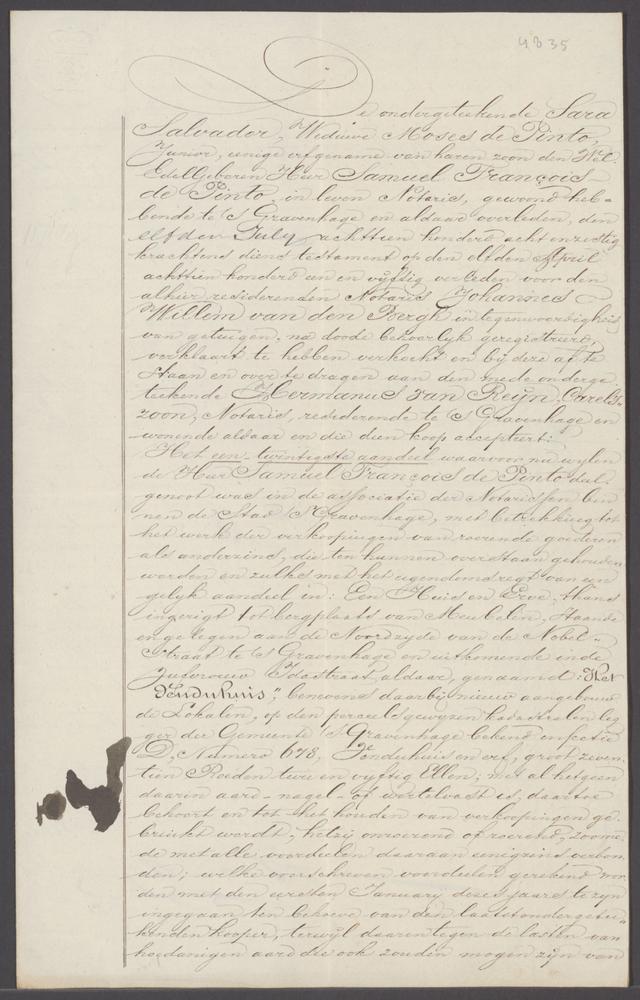 4835
De ondergeteekende Sara
Salvador, Weduwe Moses de Pinto,
Junior, eenige erfgename van haren zoon den Wel
EdelGeboren Heer Samuel François
de Pinto, in leven Notaris, gewoond heb-
bende te 's Gravenhage en aldaar overleden, den
elfden July achttien honderd acht en zestig
krachtens diens testament op den elfden April
achttien honderd een en vijftig verleden voor den
alhier resideerenden Notaris Johannes
Willem van den Bergh in tegenwoordigheid
van getuigen, na doode behoorlyk geregistreerd,
verklaart te hebben verkocht en bij deze af te
staan en over te dragen aan den mede onderge
teekende Hermanus van Reijn, Carels-
zoon, Notaris, resideerende te 's Gravenhage en
wonende aldaar en die dien koop accepteert:
Het een twintigste aandeel waarvoor nu wylen
de Heer Samuel François de Pinto deel-
genoot was in de associatie der Notarissen bin
nen de Stad 's Gravenhage, met betrekking tot
het werk der verkoopingen van roerende goederen
als anderzins, die ten hunnen overstaan gehouden
worden en zulks met het eigendomsregt van een
gelyk aandeel in: Een Huis en Erve, thans
ingerigt tot bergplaats van Meubelen, staande
en gelegen aan de Noordzyde van de Nobel-
Straat te 's Gravenhage en uitkomende in de
Juffrouw Idastraat, aldaar, genaamd: "Het
Venduhuis", benevens daarbij nieuw aangebouw
de Lokalen, op den perceelsgewyzen kadastralen leg
ger der Gemeente 's Gravenhage bekend in sectie
D, Numero 678, Venduhuis en erf, groot zeven
tien Roeden twee en vyftig Ellen; met al hetgeen
daarin aard- nagel- of wortelvast is, daartoe
behoort en tot het houden van verkoopingen ge-
bruikt wordt, hetzij onroerend of roerend, zoome-
de met alle voordeelen daaraan eenigzins verbon
den; welke voorschreven voordeelen gerekend wor
den met den eersten January dezes jaars te zyn
ingegaan ten behoeve van den laatstondergetee-
kenden kooper, terwyl daarentegen de lasten van
hoedanigen aard die ook zouden mogen zyn van